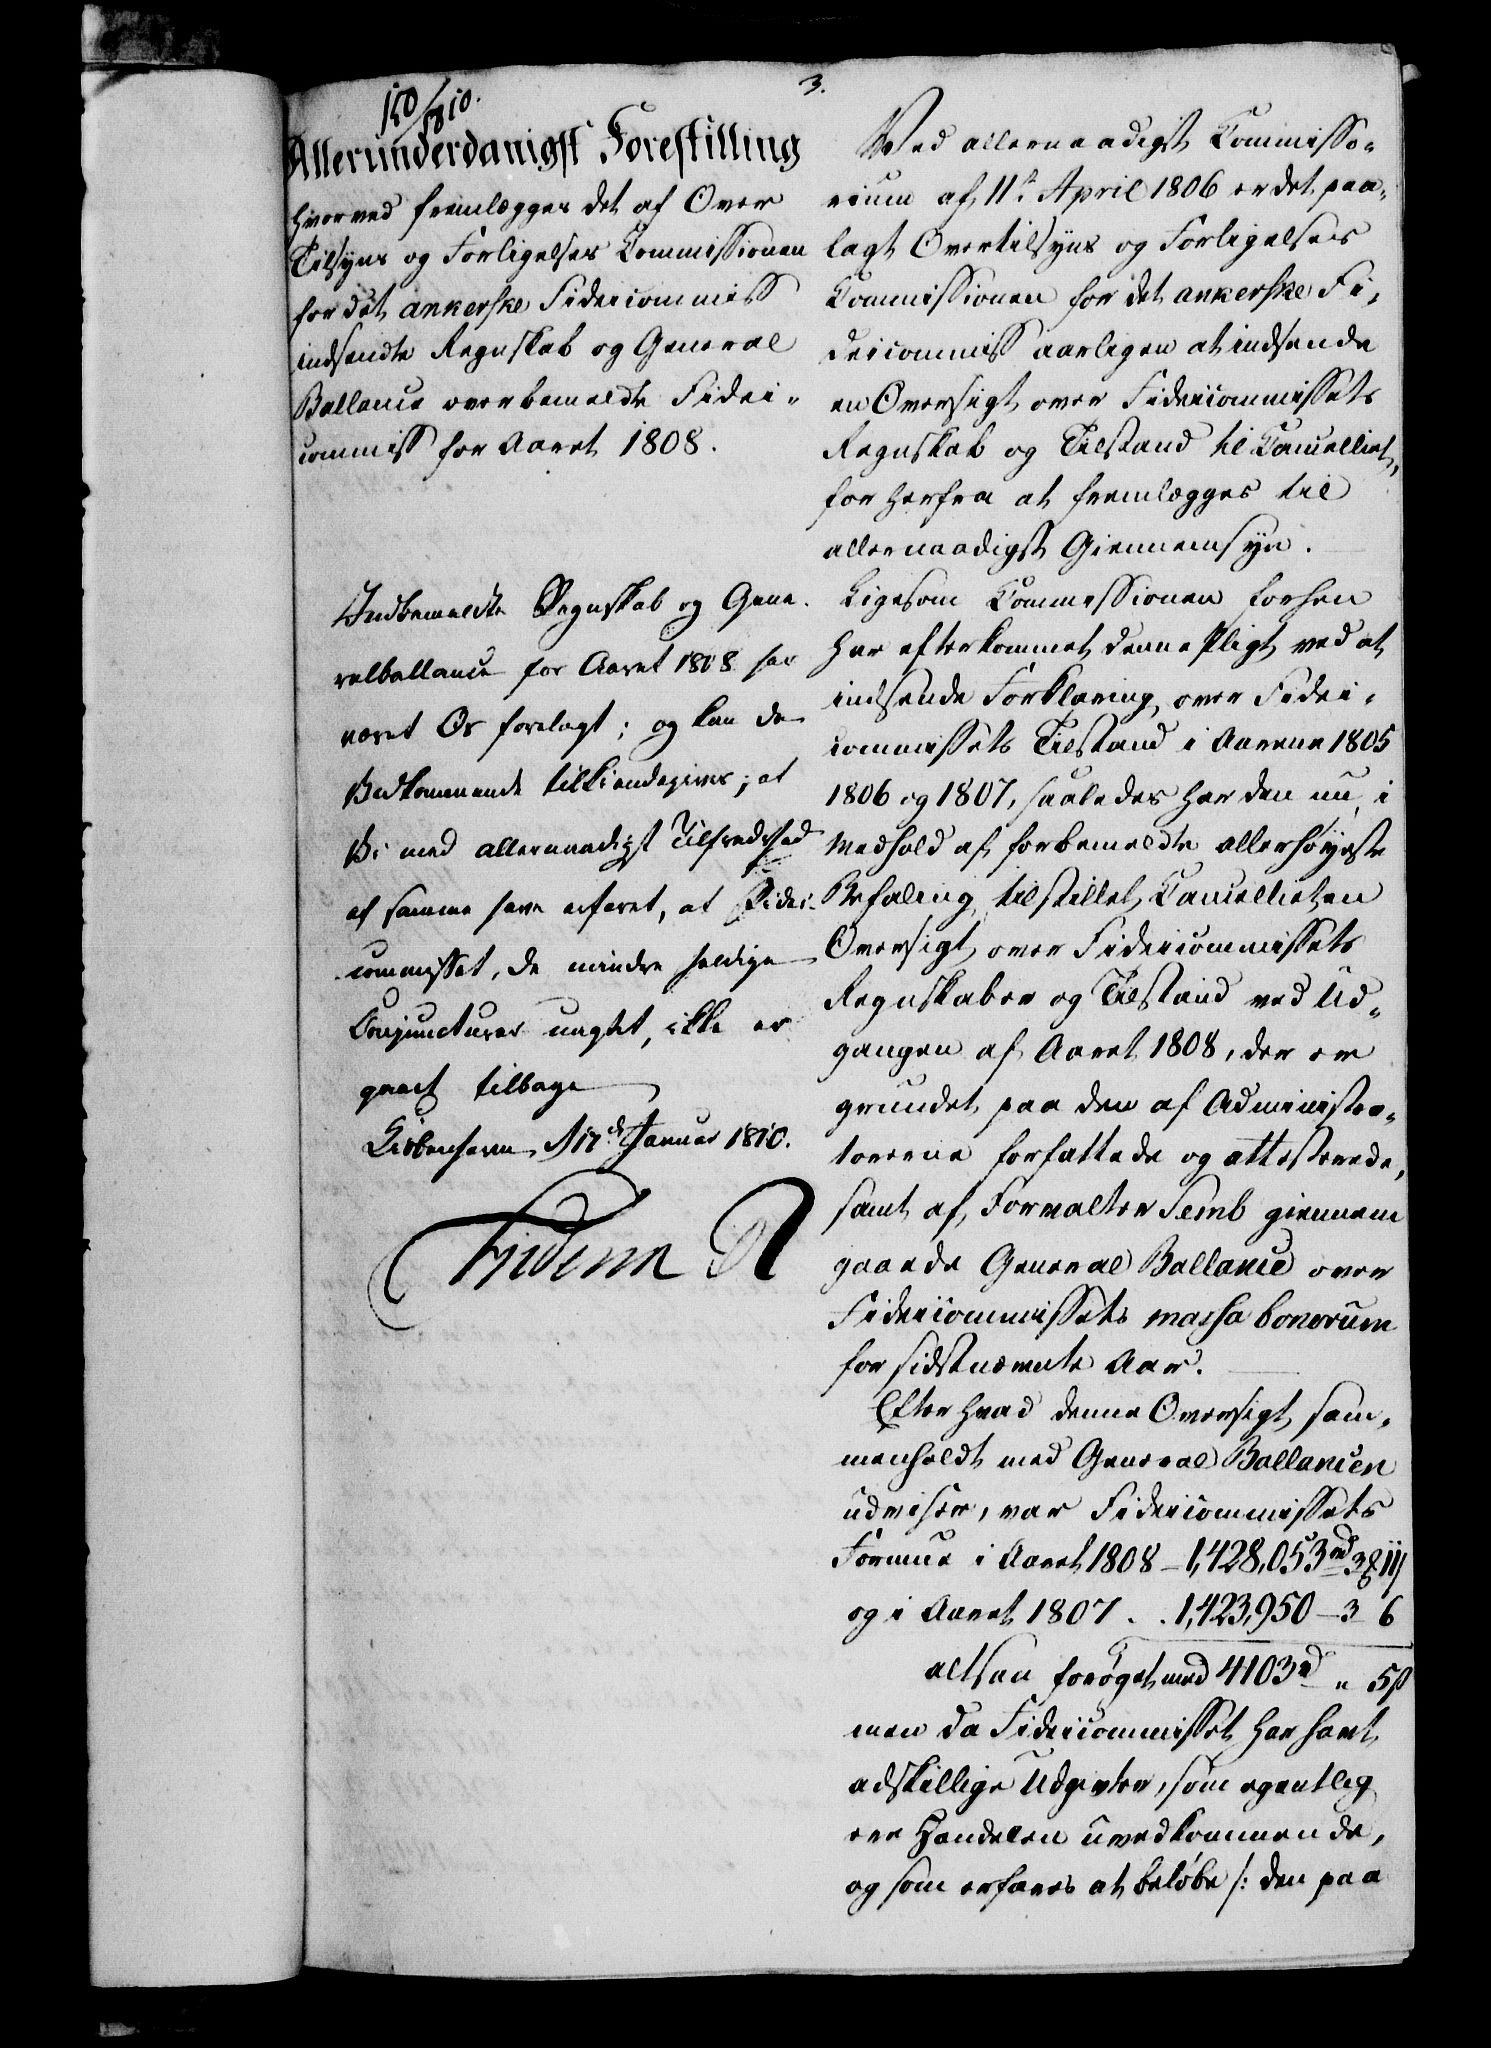 3.
150/1810.
Allerunderdanigst Forestilling
hvorved fremlægges det af Over
Tilsyns og Forligelses Commissionen
for det ankerske Fideicommiss
indsendte Regnskab og General
Ballance over bemeldte Fidei-
commiss for Aaret 1808.
Indbemeldte Regnskab og Gene-
ralballance for Aaret 1808 har
været Os forelagt; og kan de
Vedkommende tilkiendegives, at
Vi med allernaadigst Tilfredshed
af samme have erfaret, at Fidei-
commisset, de mindre heldige
Conjuncturer uagtet, ikke er
gaaet tilbage
Kiøbenhavn d 17de Januar 1810.
Friderich R
Ved allernaadigst Commisso-
rium af 11te April 1806 er det paa-
lagt Overtilsyns og Forligelses
Commissionen for det ankerske Fi-
deicommiss aarligen at indsende
en Oversigt over Fideicommissets
Regnskab og Tilstand til Cancelliet,
for herfra at fremlægges til
allernaadigst Giennemsyn.
Ligesom Commissionen forhen
har efterkommet denne Pligt ved at
indsende Forklaring over Fidei-
commissets Tilstand i Aarene 1805
1806 og 1807, saaledes har den nu, i
Medhold af forbemeldte allerhøyeste
Befaling tilstillet Cancelliet en
Oversigt over Fideicommissets
Regnskaber og Tilstand ved Ud-
gangen af Aaret 1808, der er
grundet paa den af Administra-
torerne forfattede og attesterede,
samt af Forvalter Semb giennem
gaaede General Ballance over
Fideicommissets massa bonorum
for sidstnævnte Aar.
Efter hvad denne Oversigt, sam-
menholdt med General Ballancen
udviser, var Fideicommissets
Formue i Aaret 1808 - 1,428,053 rd 3 ꝥ 11 ß
og i Aaret 1807 . . 1,423,950 - 3 6
altsaa forøget med 4103 rd " 5 ß
men da Fideicommisset har havt
adskillige Udgivter, som egentlig
ere Handelen uvedkommende,
og som erfares at beløbe /: den paa